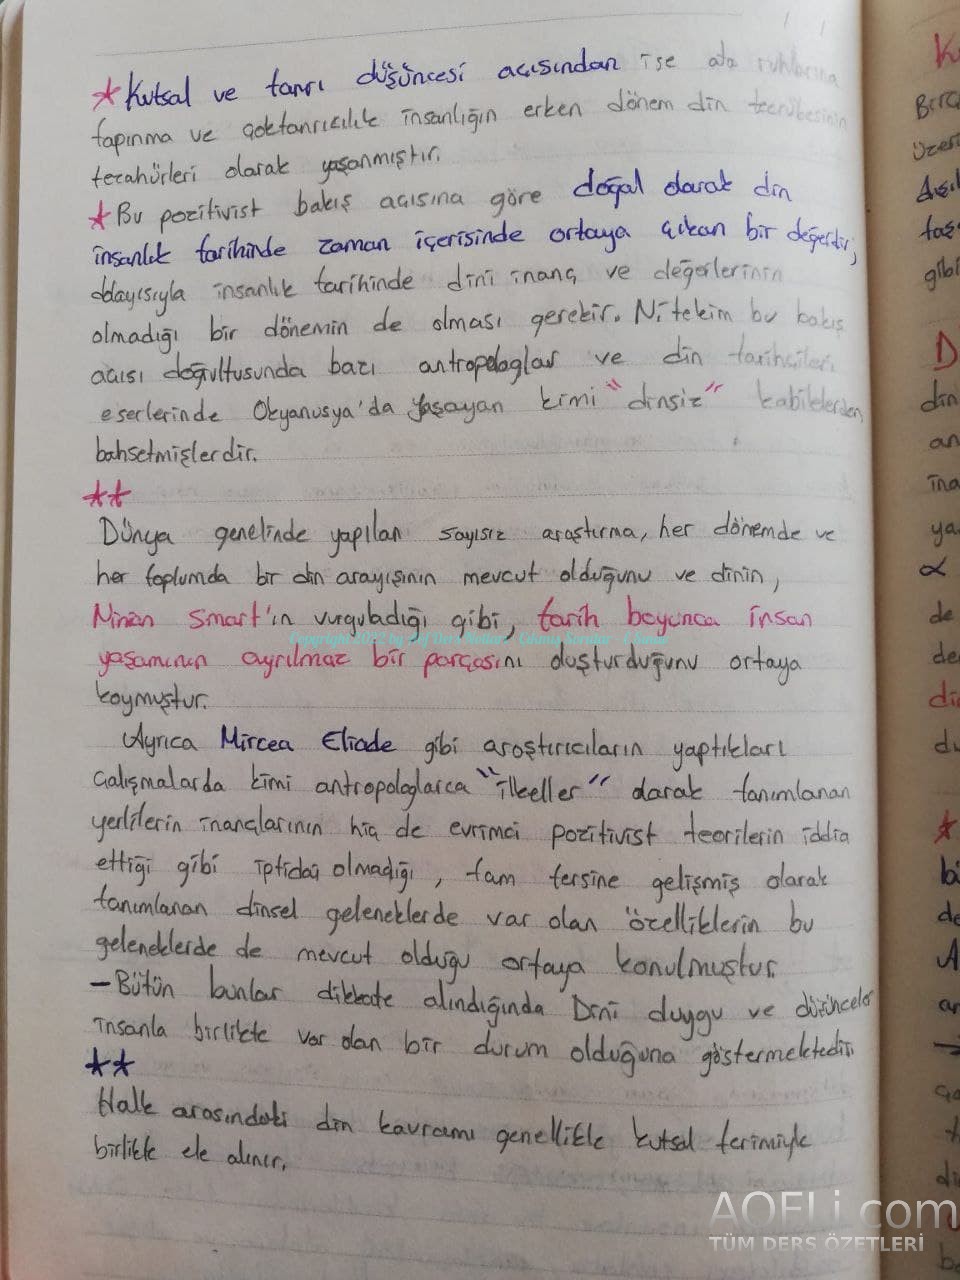 ★ Kutsal ve tanrı düşüncesi açısından ise ata ruhlarına
tapınma ve çoktanrıcılık insanlığın erken dönem din tecrübesinin
tezahürleri olarak yaşanmıştır.
★ Bu pozitivist bakış açısına göre doğal olarak din
insanlık tarihinde zaman içerisinde ortaya çıkan bir değerdir;
dolayısıyla insanlık tarihinde dini inanç ve değerlerinin
olmadığı bir dönemin de olması gerekir. Nitekim bu bakış
açısı doğrultusunda bazı antropologlar ve din tarihçileri
eserlerinde Okyanusya'da yaşayan kimi "dinsiz" kabilelerden
bahsetmişlerdir.
★★
Dünya genelinde yapılan sayısız araştırma, her dönemde ve
her toplumda bir din arayışının mevcut olduğunu ve dinin,
Ninian Smart'ın vurguladığı gibi, tarih boyunca insan
yaşamının ayrılmaz bir parçasını oluşturduğunu ortaya
koymuştur.
Ayrıca Mircea Eliade gibi araştırıcıların yaptıkları
çalışmalarda kimi antropologlarca "ilkeller" olarak tanımlanan
yerlilerin inançlarının hiç de evrimci pozitivist teorilerin iddia
ettiği gibi iptidai olmadığı, tam tersine gelişmiş olarak
tanımlanan dinsel geleneklerde var olan özelliklerin bu
geleneklerde de mevcut olduğu ortaya konulmuştur.
- Bütün bunlar dikkate alındığında Dini duygu ve düşünceler
insanla birlikte var olan bir durum olduğuna göstermektedir.
★★
Halk arasındaki din kavramı genellikle kutsal terimiyle
birlikte ele alınır.
AOFLi.com
TÜM DERS ÖZETLERİ